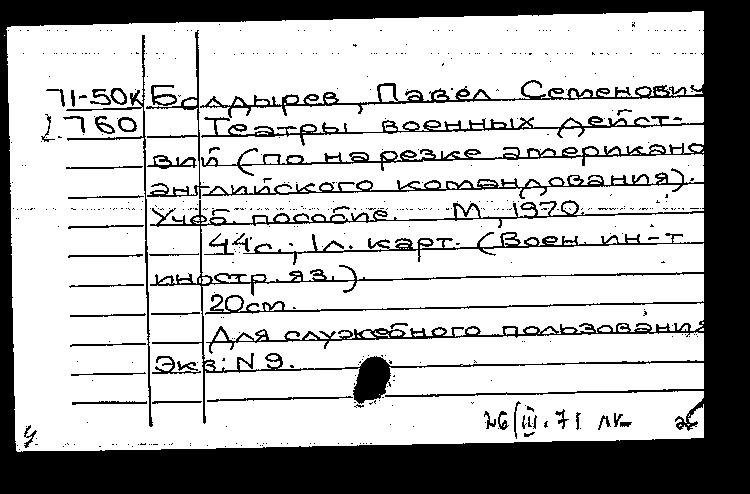 71-50к Болдырев, Павел Семенович
760 Театры военных дейст-
вий (по нарезке американо
английского командования).
Учеб. пособие. М., 1970.
44с.; 1л. карт. (Воен. ин-т
иностр. яз.).
20см.
Для служебного пользования
Экз: N 9.
26/III.71